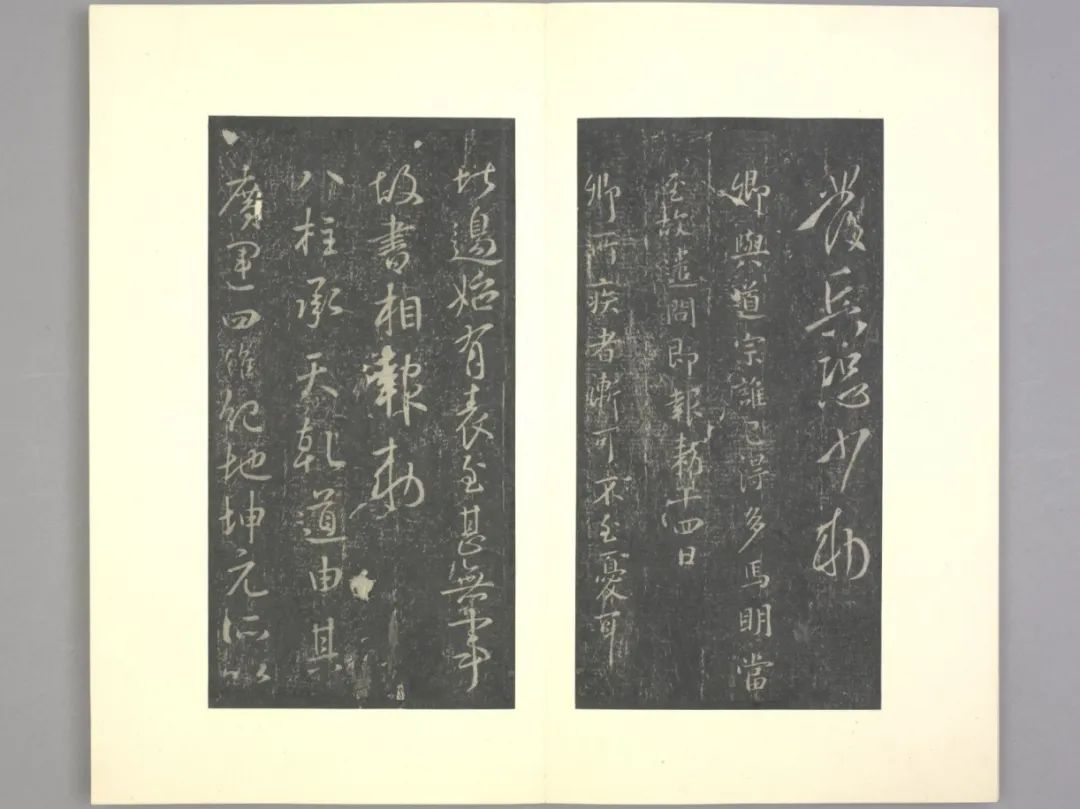 發兵恐少勑
卿與道宗誰已得多馬明當
至故遣問即報勑十四日
卿所疾者漸可不至憂耳
北邊始有表至甚無事
故書相報勑
八柱承天乾道由其
廣運四維紀地坤元所以